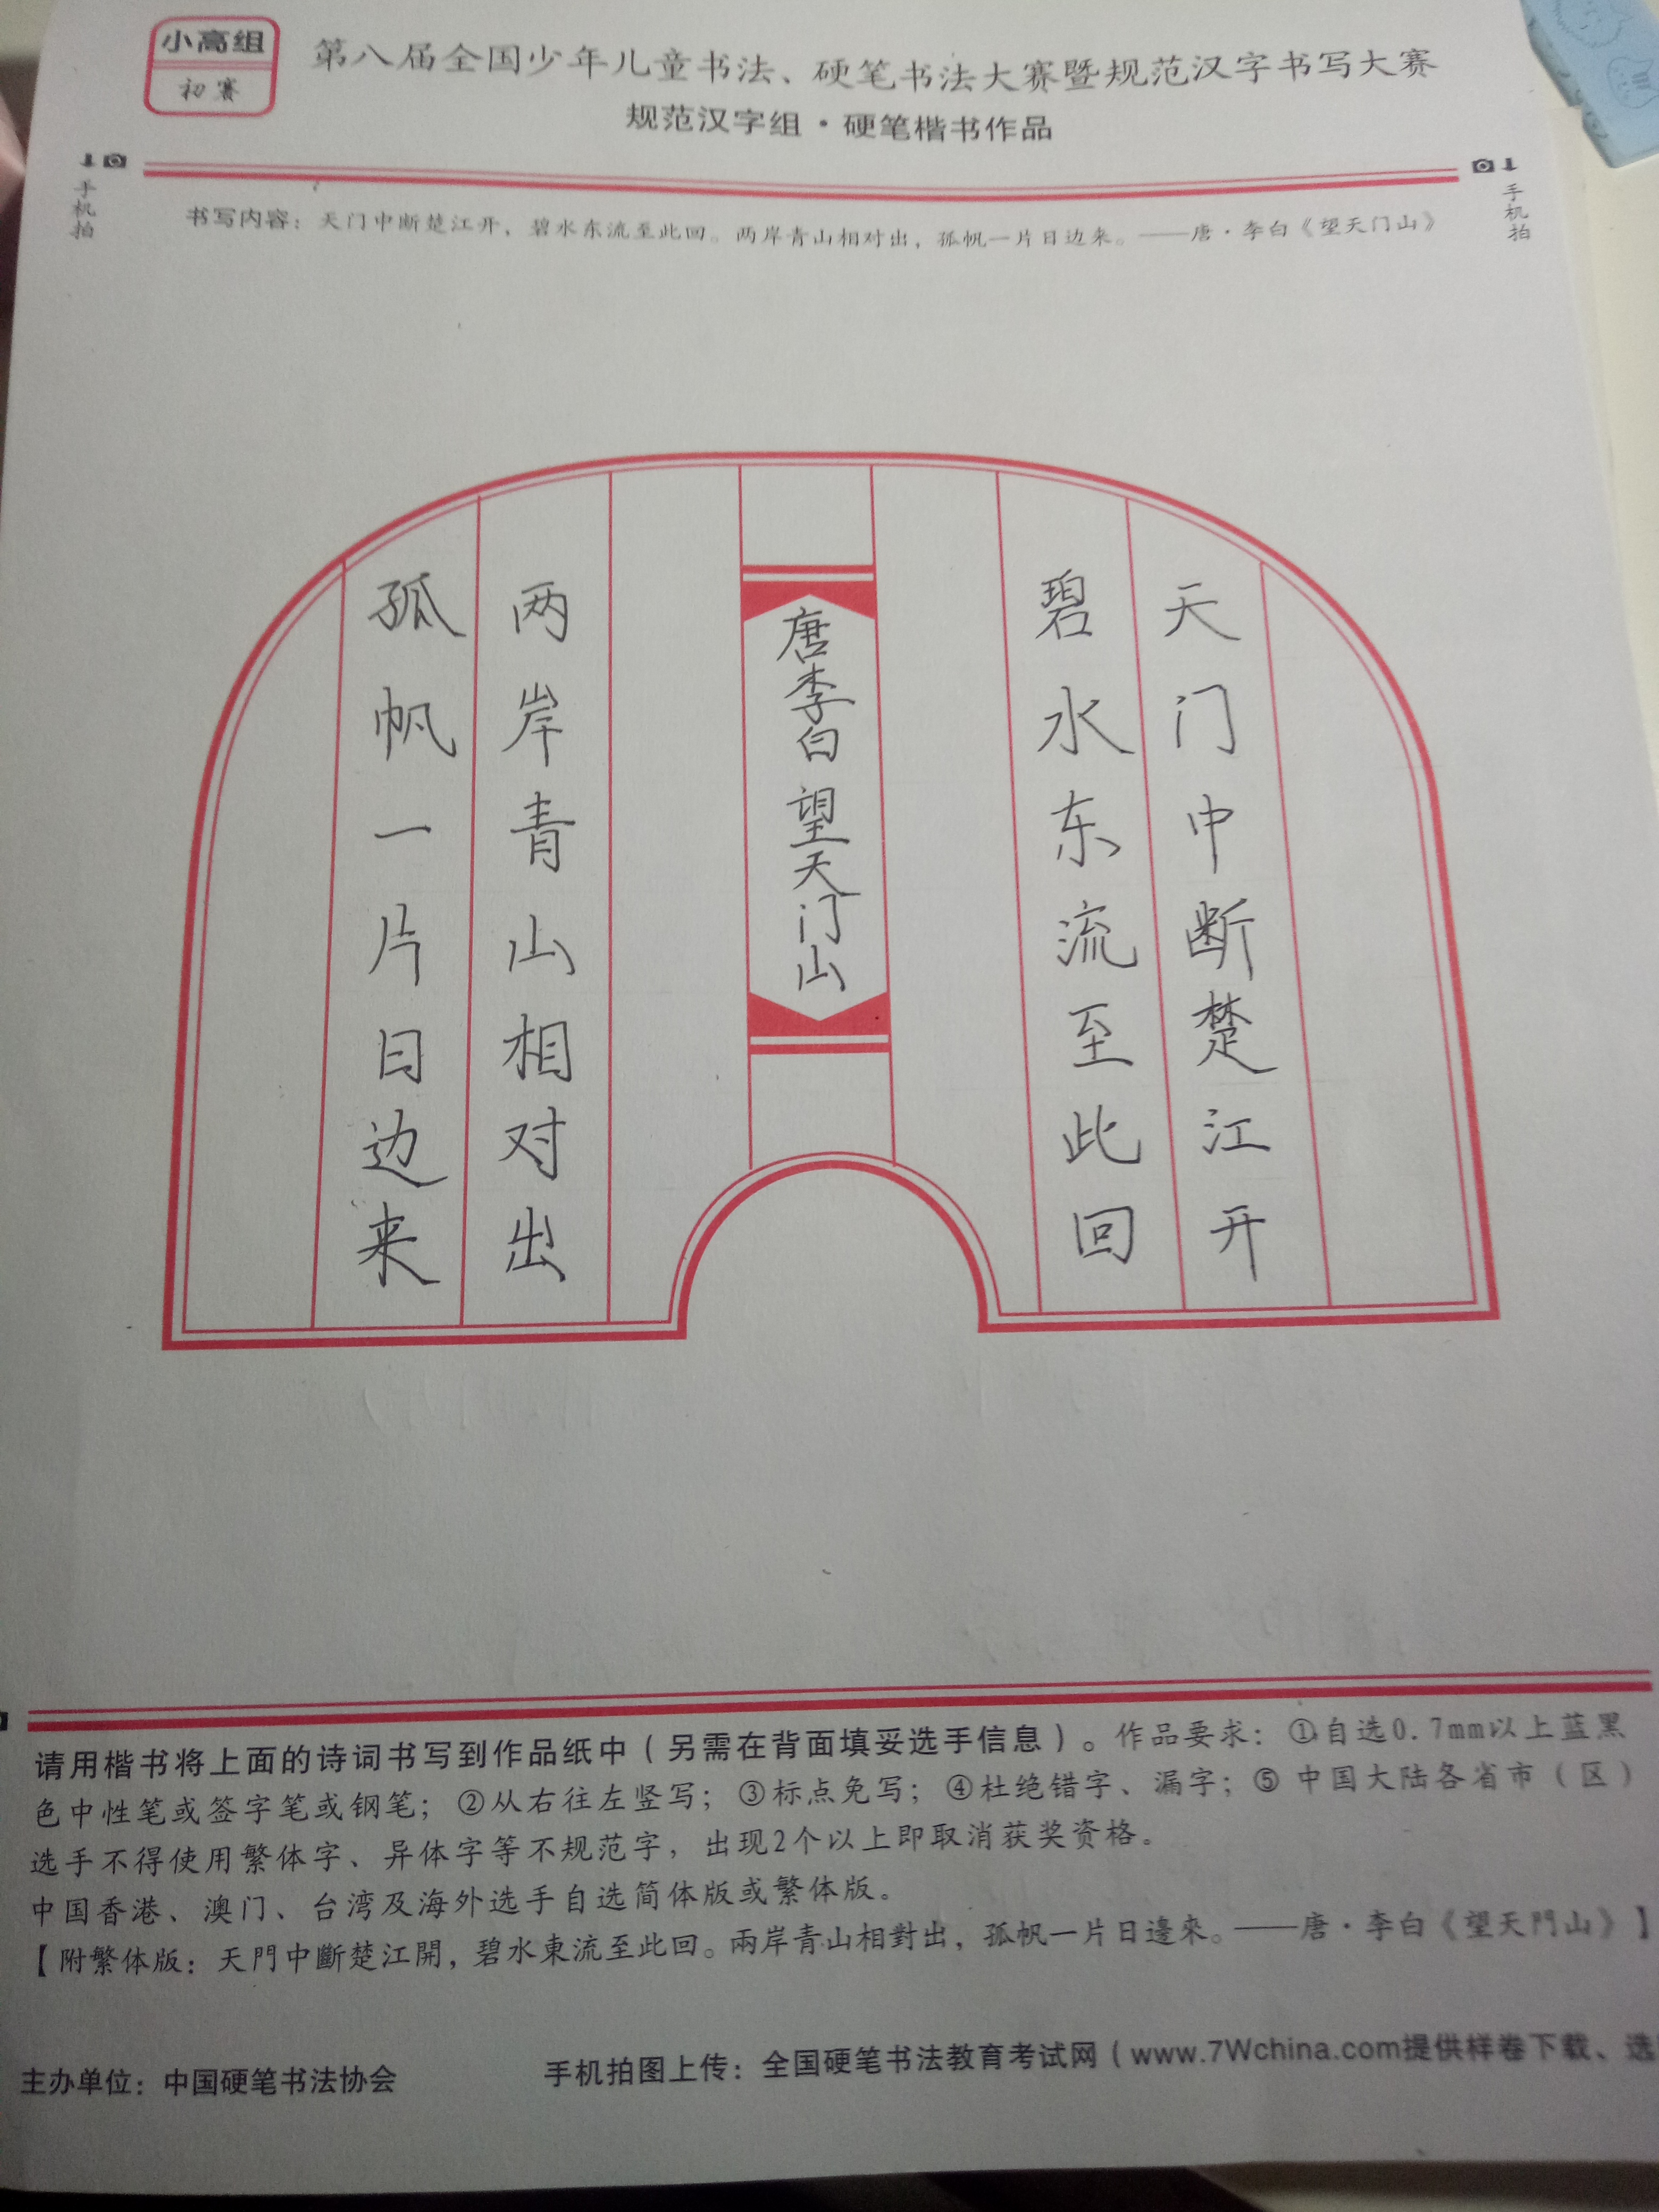 小高组
初赛
第八届全国少年儿童书法、硬笔书法大赛暨规范汉字书写大赛
规范汉字组·硬笔楷书作品
手机拍
手机拍
书写内容：天门中断楚江开，碧水东流至此回。两岸青山相对出，孤帆一片日边来。——唐·李白《望天门山》
天门中断楚江开
碧水东流至此回
唐李白 望天门山
两岸青山相对出
孤帆一片日边来
请用楷书将上面的诗词书写到作品纸中（另需在背面填妥选手信息）。作品要求：①自选0.7mm以上蓝黑
色中性笔或签字笔或钢笔；②从右往左竖写；③标点免写；④杜绝错字、漏字；⑤中国大陆各省市（区）
选手不得使用繁体字、异体字等不规范字，出现2个以上即取消获奖资格。
中国香港、澳门、台湾及海外选手自选简体版或繁体版。
【附繁体版：天門中斷楚江開，碧水東流至此回。兩岸青山相對出，孤帆一片日邊來。——唐·李白《望天門山》】
主办单位：中国硬笔书法协会
手机拍图上传：全国硬笔书法教育考试网（www.7Wchina.com提供样卷下载、选